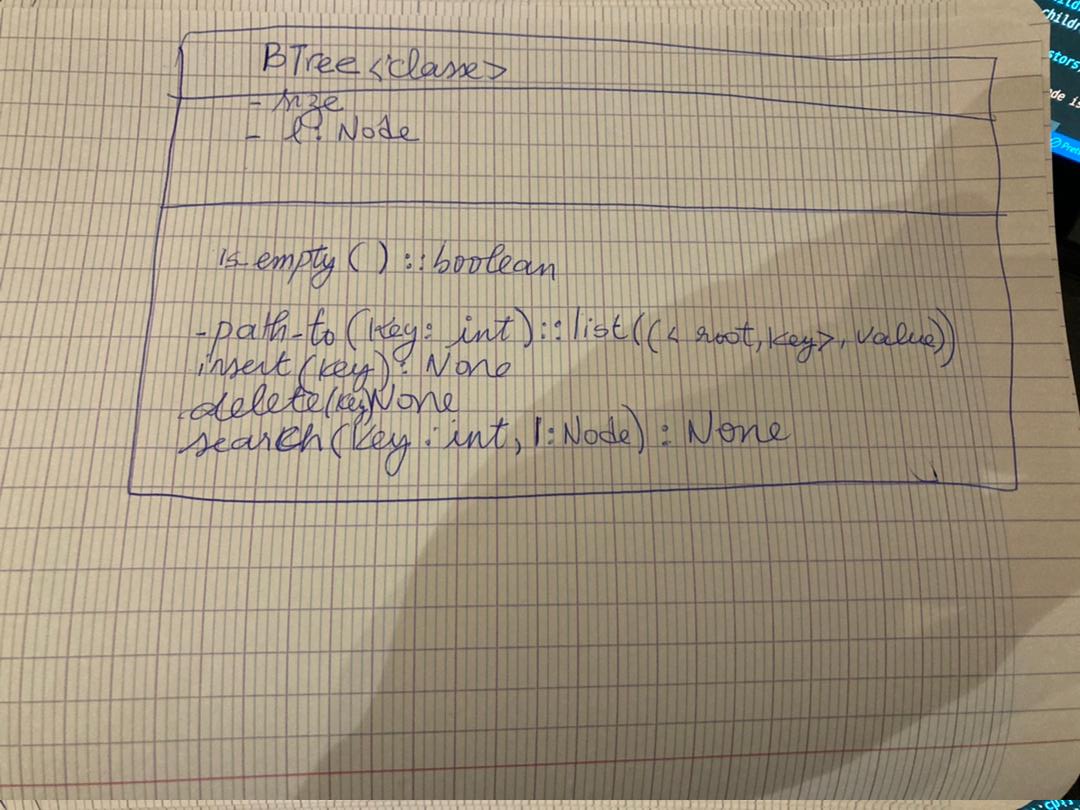 BTree <classe>
- size
- l: Node
is_empty() :: boolean
- path-to (key: int) :: list((< root, key>, value))
insert(key): None
delete(key)None
search(key: int, l: Node) : None
childr
stors,
de is